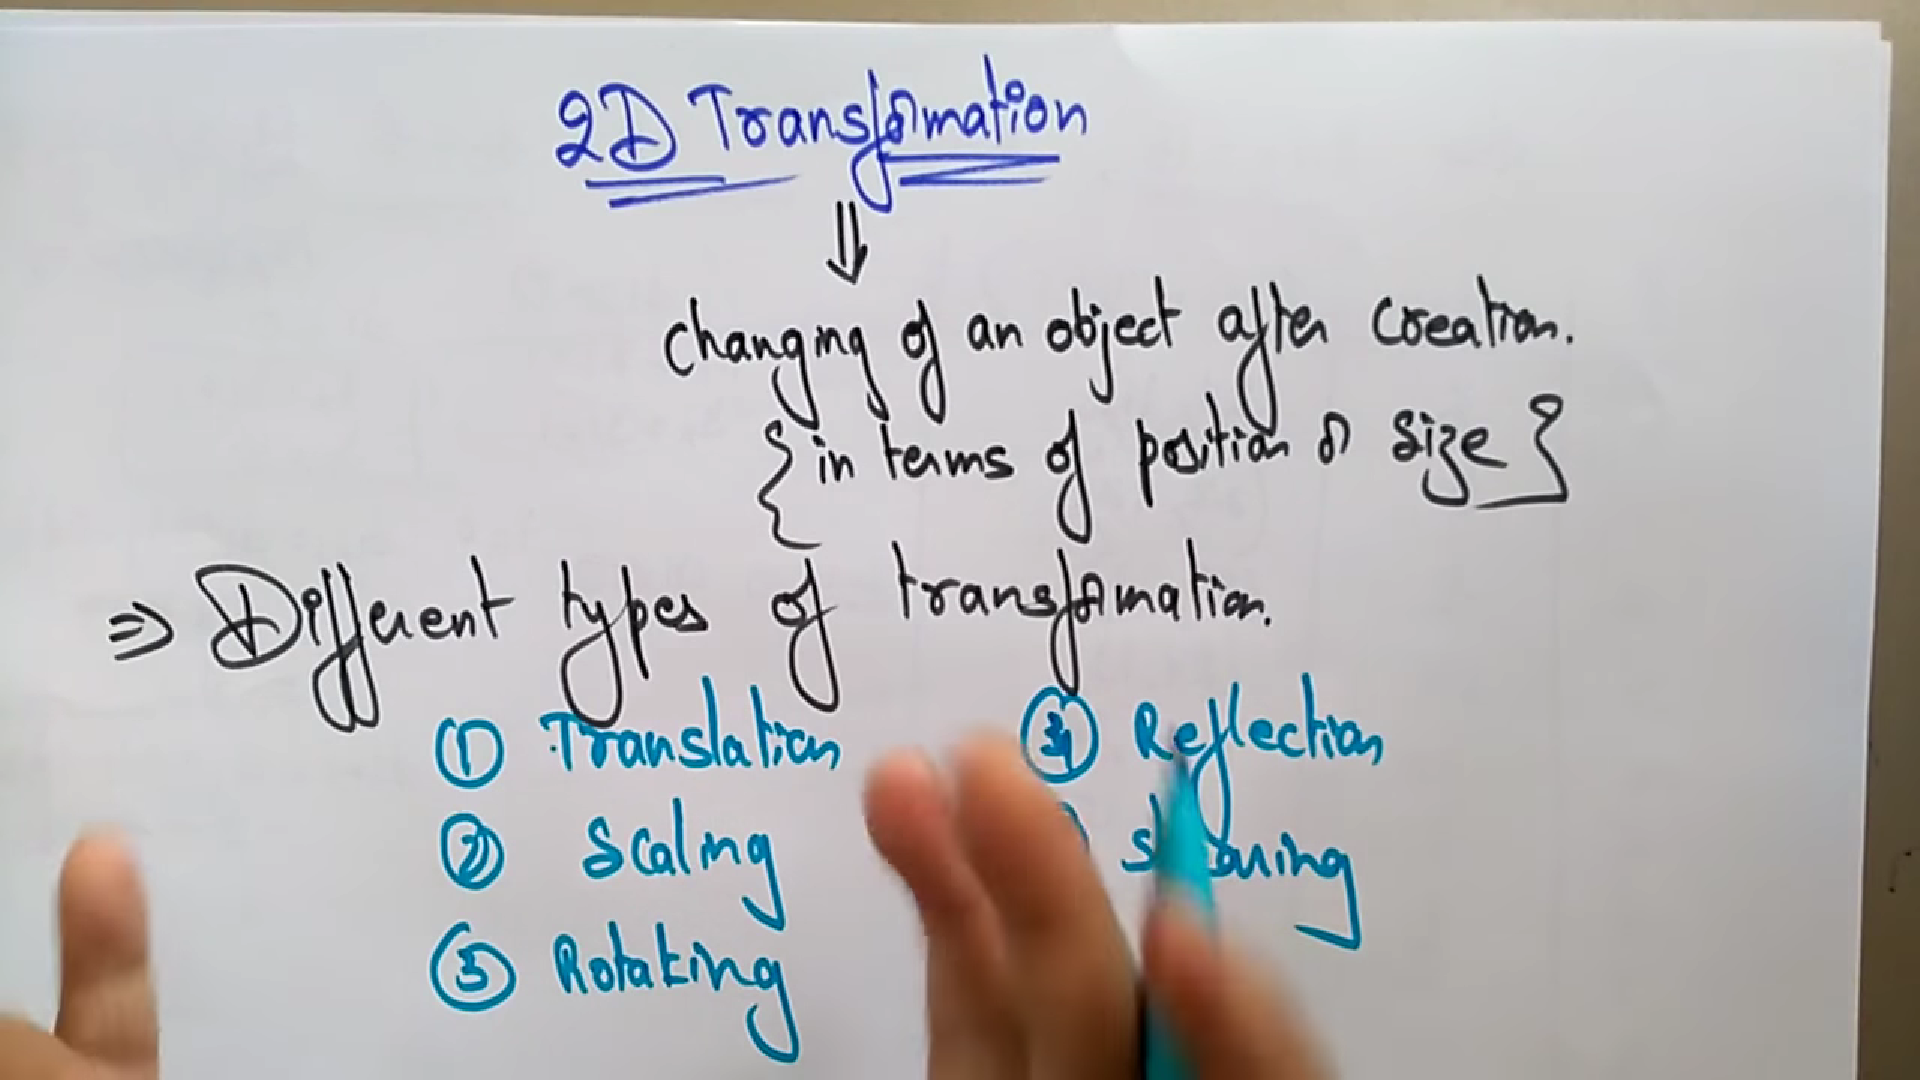 2D Transformation
⇓
changing of an object after creation.
{in terms of position or size}
⇒ Different types of transformation.
① Translation
② Scaling
③ Rotating
④ Reflection